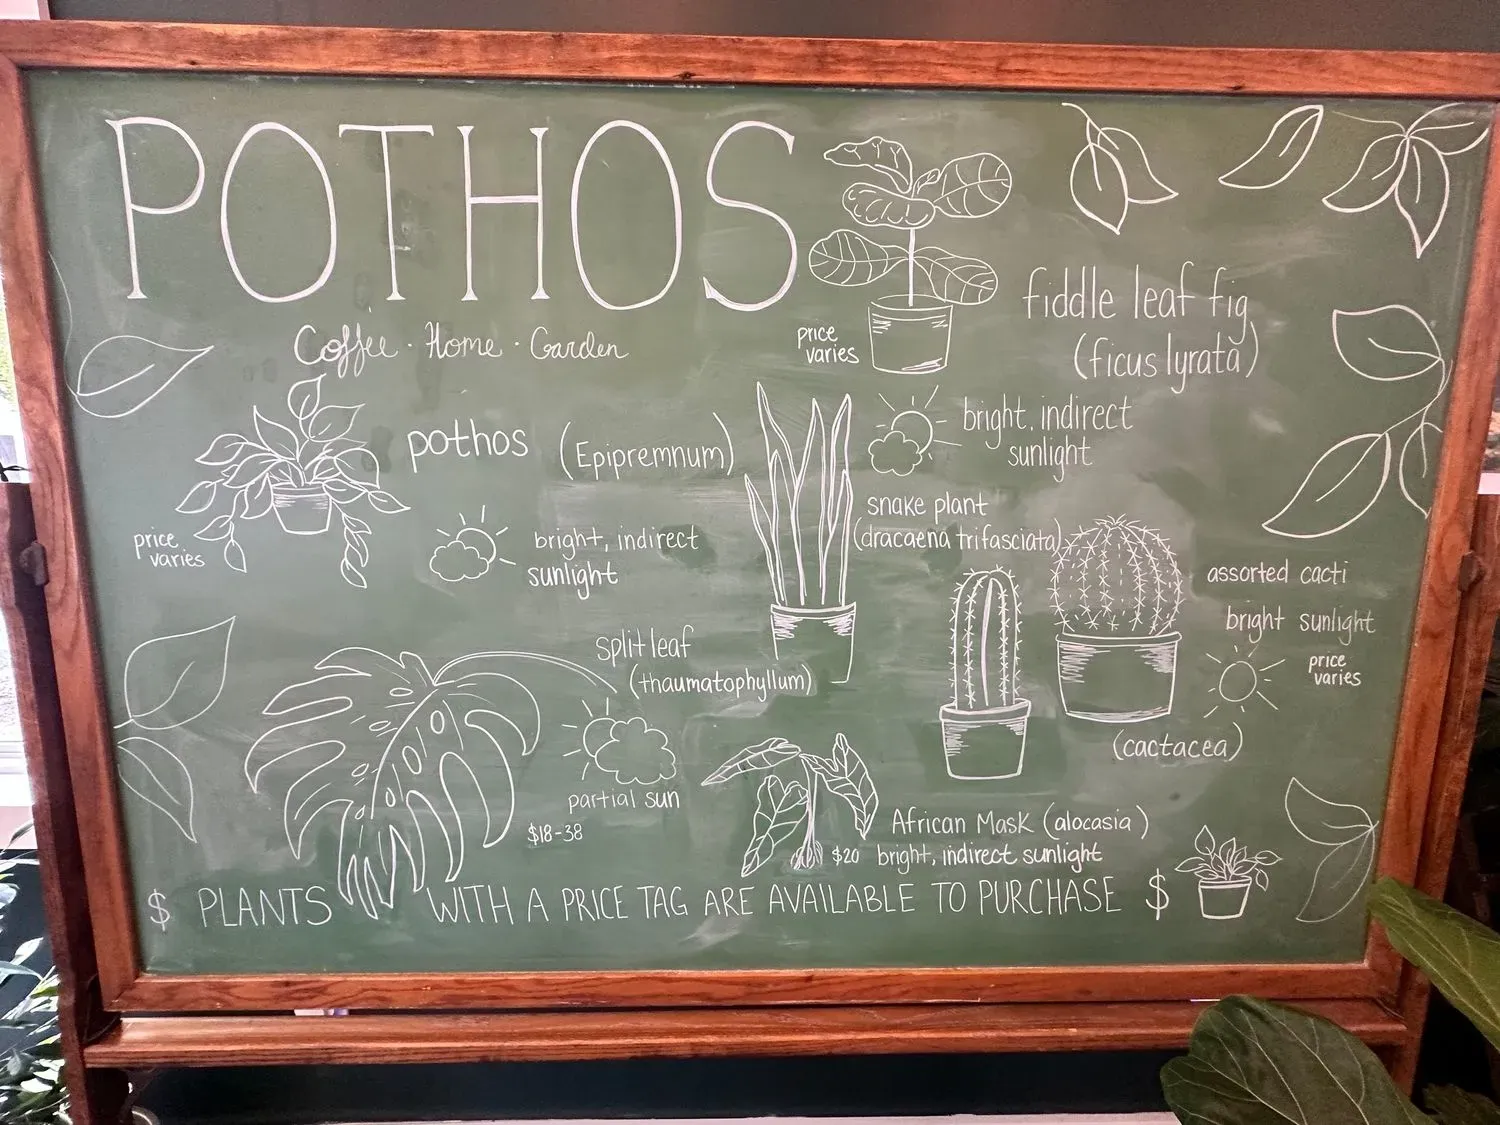 POTHOS
Coffee · Home · Garden
price
varies
fiddle leaf fig
(ficus lyrata)
bright, indirect
sunlight
pothos (Epipremnum)
price
varies
bright, indirect
sunlight
snake plant
(dracaena trifasciata)
assorted cacti
bright sunlight
price
varies
(cactacea)
split leaf
(thaumatophyllum)
partial sun
$18-38
African Mask (alocasia)
$20 bright, indirect sunlight
$ PLANTS WITH A PRICE TAG ARE AVAILABLE TO PURCHASE $